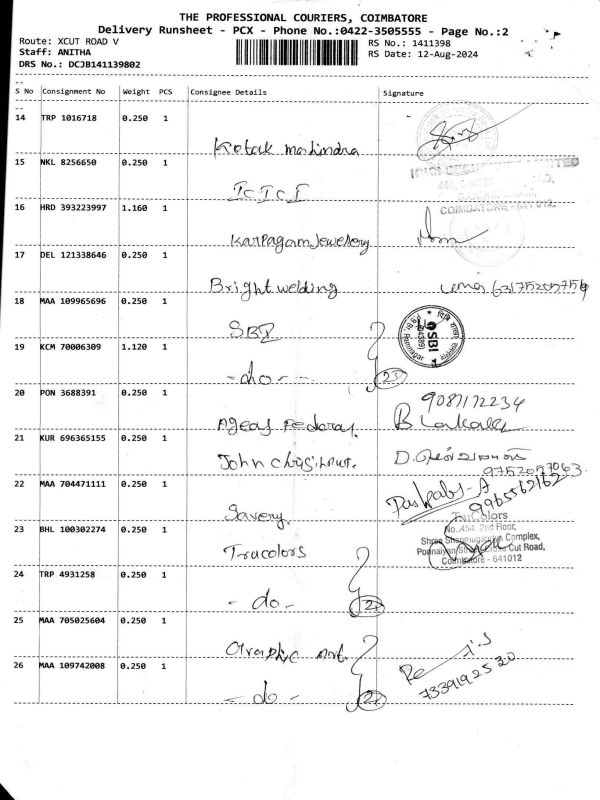 THE PROFESSIONAL COURIERS, COIMBATORE
Delivery Runsheet - PCX - Phone No.:0422-3505555 - Page No.:2
Route: XCUT ROAD V
RS No.: 1411398
Staff: ANITHA
RS Date: 12-Aug-2024
DRS No.: DCJB141139802
S No Consignment No Weight PCS Consignee Details Signature
14 TRP 1016718 0.250 1
Kotak mahindra
15 NKL 8256650 0.250 1
ICICI
LIMITED
COIMBATORE - 641 012.
16 HRD 393223997 1.160 1
Karpagam Jewellery
17 DEL 121338646 0.250 1
Bright welding
18 MAA 109965696 0.250 1
SBI
SBI
19 KCM 70006309 1.120 1
- do - -
20 PON 3688391 0.250 1
9087172234
Ageas Federal
21 KUR 696365155 0.250 1
John
9752057063
22 MAA 704471111 0.250 1
9965562162
Savery
TruColors
No.454, 2nd Floor,
23 BHL 100302274 0.250 1
Complex,
Trucolors
Cut Road,
Coimbatore - 641012
24 TRP 4931258 0.250 1
- do -
25 MAA 705025604 0.250 1
Graphic Art.
26 MAA 109742008 0.250 1
7339192530
- do -